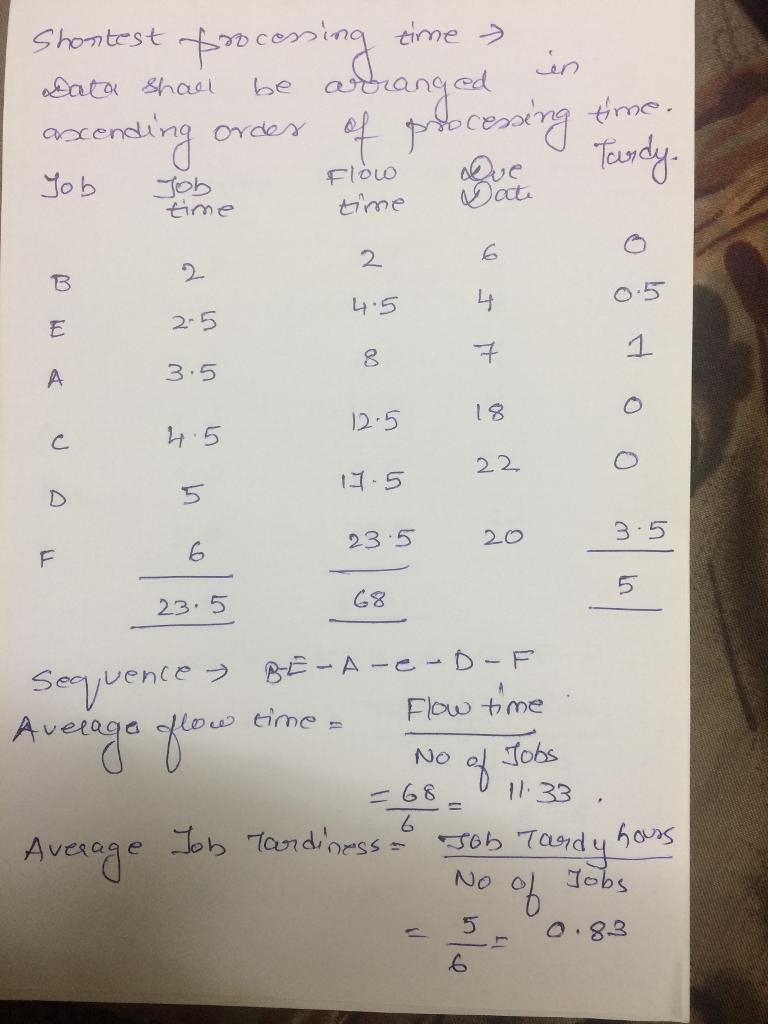 Shortest processing time →
Data shall be arranged in
ascending order of processing time.
Job Job time Flow time Due Date Tardy.
B 2 2 6 0
E 2.5 4.5 4 0.5
A 3.5 8 7 1
C 4.5 12.5 18 0
D 5 17.5 22 0
F 6 23.5 20 3.5
23.5 68 5
Sequence → B-E-A-C-D-F
Average flow time = Flow time / No of Jobs
= 68/6 = 11.33.
Average Job Tardiness = Job Tardy hours / No of Jobs
= 5/6 = 0.83